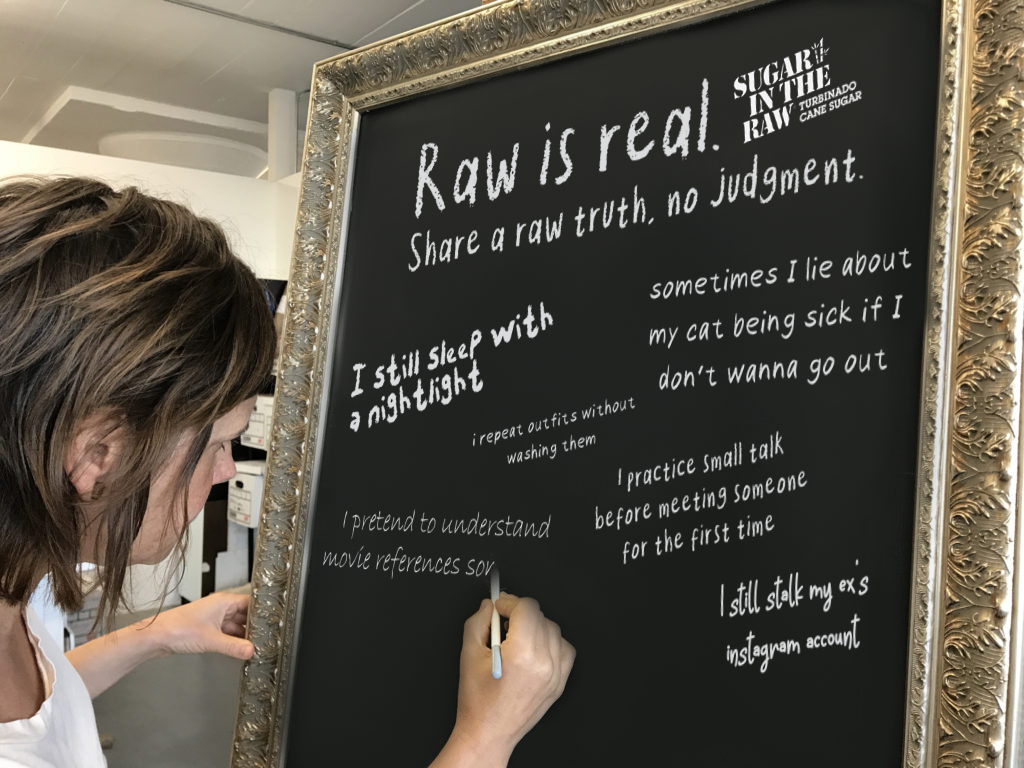 SUGAR
IN THE
RAW
TURBINADO
CANE SUGAR
Raw is real.
Share a raw truth, no judgment.
sometimes I lie about
my cat being sick if I
don't wanna go out
I still sleep with
a nightlight
i repeat outfits without
washing them
I practice small talk
before meeting someone
for the first time
I pretend to understand
movie references som
I still stalk my ex's
instagram account